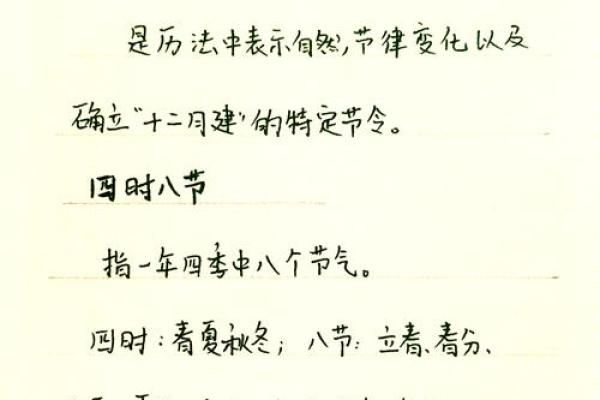 是历法中表示自然,节律变化以及
确立“十二月建”的特定节令。
四时八节
指一年四季中八个节气。
四时:春夏秋冬; 八节: 立春、春分、